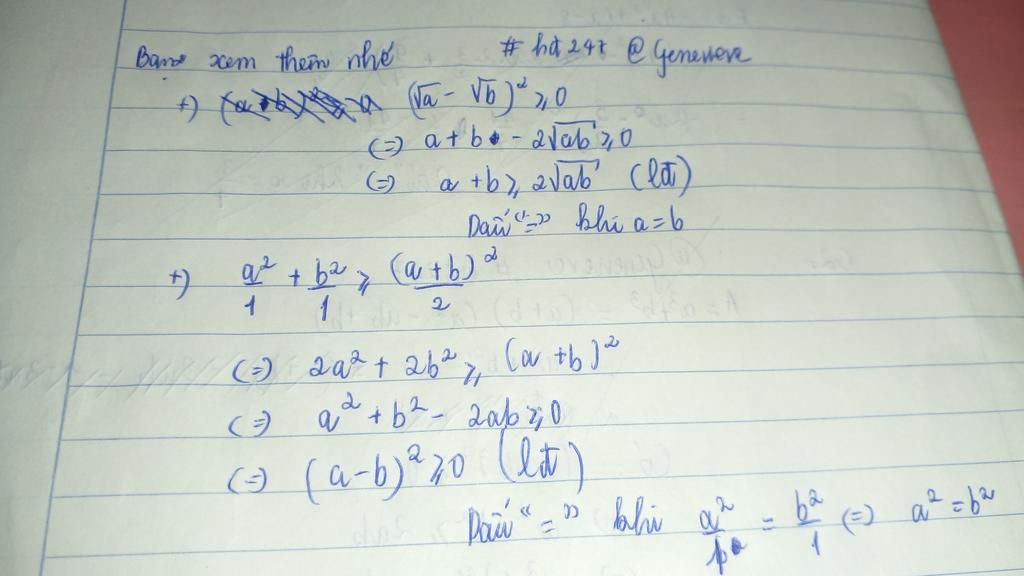 Bạn xem thêm nhé # hđ247 @Geneverve
+) (√a - √b)² ≥ 0
(=) a + b - 2√ab ≥ 0
(=) a + b ≥ 2√ab (lđ)
Dấu "=" khi a = b
+) a²/1 + b²/1 ≥ (a+b)²/2
(=) 2a² + 2b² ≥ (a+b)²
(=) a² + b² - 2ab ≥ 0
(=) (a-b)² ≥ 0 (lđ)
Dấu "=" khi a²/1 = b²/1 (=) a² = b²